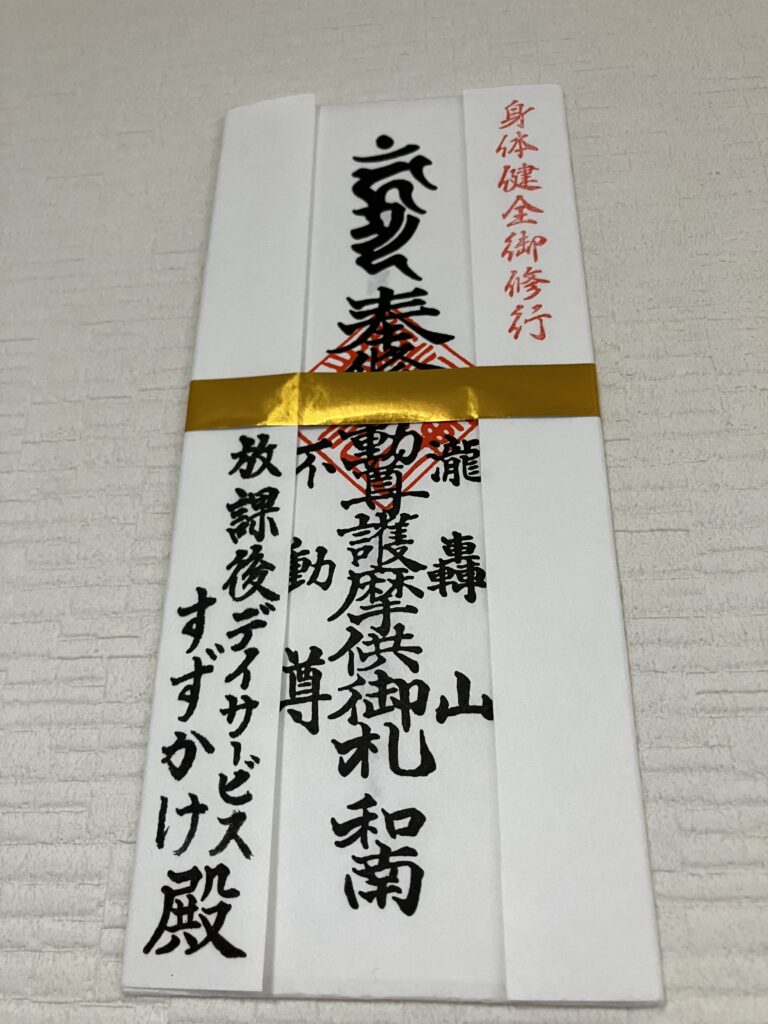 身体健全御修行
瀧轟山
奉修
動尊護摩供御札 和南
不動尊
放課後デイサービス
すずかけ殿